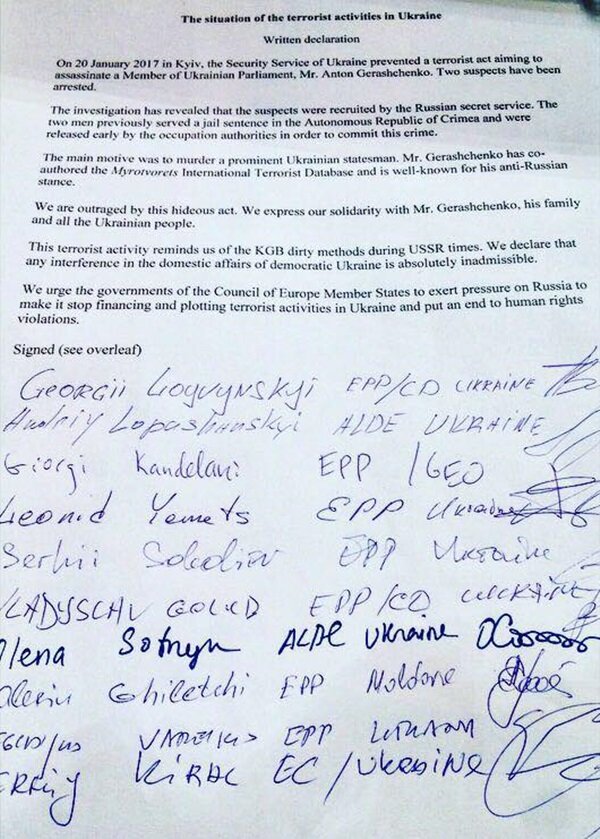 The situation of the terrorist activities in Ukraine
Written declaration
On 20 January 2017 in Kyiv, the Security Service of Ukraine prevented a terrorist act aiming to
assassinate a Member of Ukrainian Parliament, Mr. Anton Gerashchenko. Two suspects have been
arrested.
The investigation has revealed that the suspects were recruited by the Russian secret service. The
two men previously served a jail sentence in the Autonomous Republic of Crimea and were
released early by the occupation authorities in order to commit this crime.
The main motive was to murder a prominent Ukrainian statesman. Mr. Gerashchenko has co-
authored the Myrotvorets International Terrorist Database and is well-known for his anti-Russian
stance.
We are outraged by this hideous act. We express our solidarity with Mr. Gerashchenko, his family
and all the Ukrainian people.
This terrorist activity reminds us of the KGB dirty methods during USSR times. We declare that
any interference in the domestic affairs of democratic Ukraine is absolutely inadmissible.
We urge the governments of the Council of Europe Member States to exert pressure on Russia to
make it stop financing and plotting terrorist activities in Ukraine and put an end to human rights
violations.
Signed (see overleaf)
GEORGII LOGVYNSKYI EPP/CD UKRAINE
Andriy Lopushanskyi ALDE UKRAINE
Giorgi Kandelaki EPP /GEO
Leonid Yemets EPP Ukraine
Serhii Sobolev EPP Ukraine
EPP/CD UKRAINE
Olena Sotnyk ALDE Ukraine
Ghiletchi EPP Moldova
VAREIKIS EPP
KIRAL EC/UKRAINE